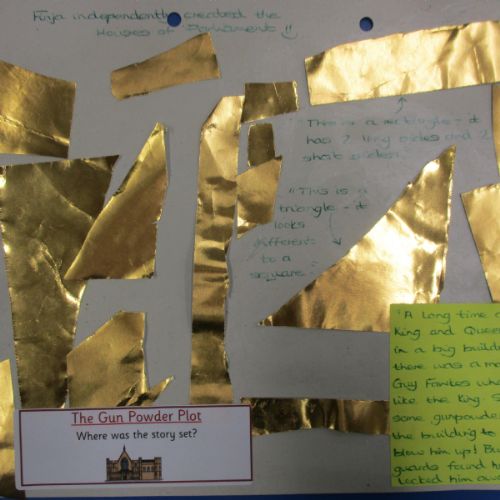 Furja independently created the
Houses of Parliament
"This is a rectangle - it
has 2 long sides and 2
short sides.
"This is a
triangle - it
looks
different
to a
square."
"A long time a
King and Quee
in a big buildi
there was a m
Guy Fawkes wh
like the King. S
some gunpowde
the building to
blow him up! Bu
guards found h
locked him aw
The Gun Powder Plot
Where was the story set?